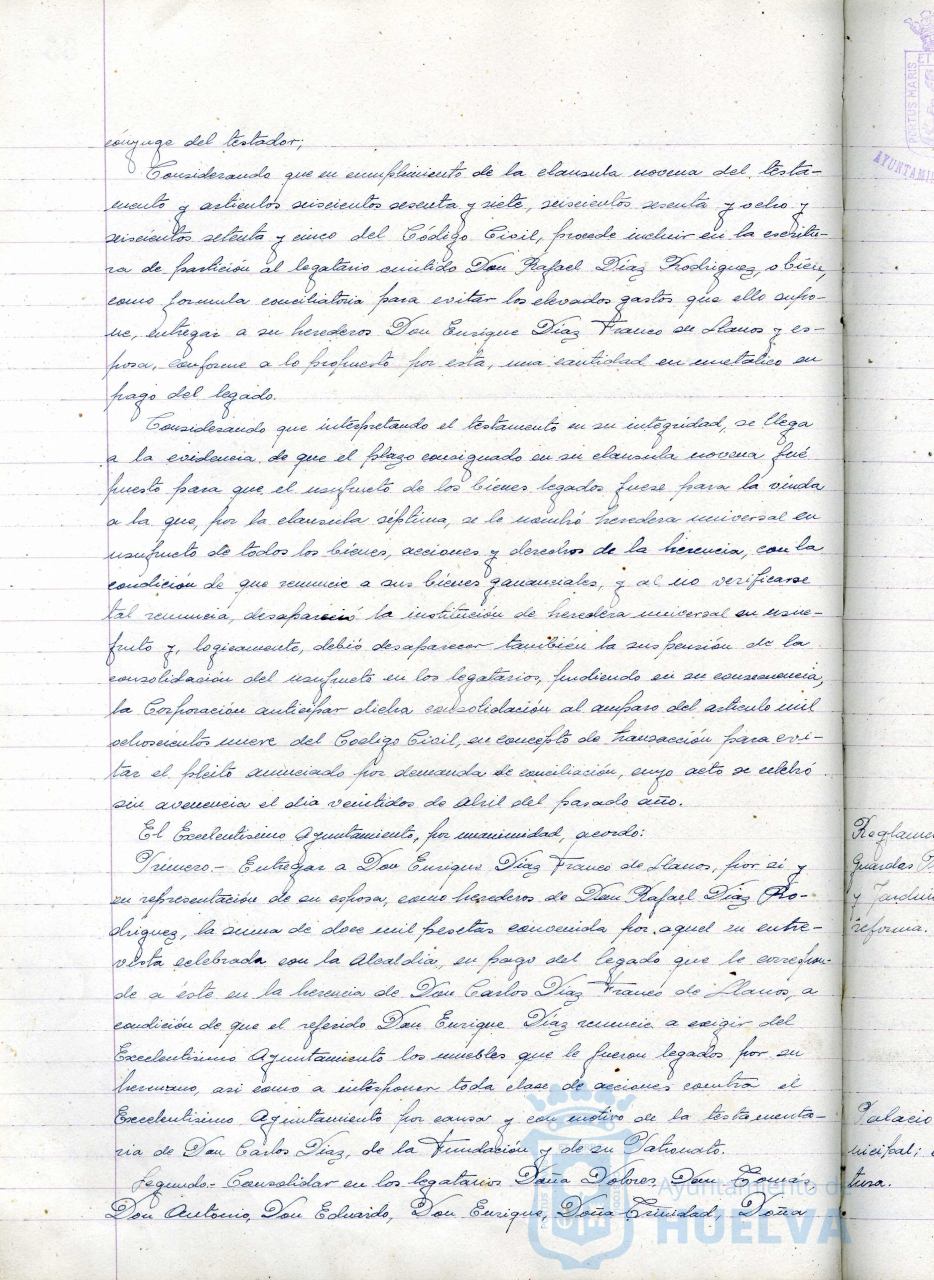 cónyuge del testador;
Considerando que en cumplimiento de la clausula novena del testa-
mento y articulos seiscientos sesenta y siete, seiscientos sesenta y ocho y
seiscientos setenta y cinco del Código Civil, procede incluir en la escritu-
ra de partición al legatario omitido Don Rafael Díaz Rodriguez, o bién,
como formula conciliatoria para evitar los elevados gastos que ello supo-
ne, entregar a su herederos Don Enrique Díaz Franco de Llanos y es-
posa, conforme a lo propuesto por esta, una cantidad en metalico en
pago del legado.
Considerando que interpretando el testamento en su integridad, se llega
a la evidencia de que el plazo consignado en su clausula novena fué
puesto para que el usufructo de los bienes legados fuese para la viuda
a la que, por la clausula séptima, se le nombró heredera universal en
usufructo de todos los bienes, acciones y derechos de la herencia, con la
condición de que renuncie a sus bienes gananciales, y al no verificarse
tal renuncia, desapareció la institución de heredera universal en usu-
fruto y, logicamente, debió desaparecer también la suspensión de la
consolidación del usufructo en los legatarios, pudiendo en su consecuencia,
la Corporación anticipar dicha consolidación al amparo del articulo mil
ochoscientos nueve del Codigo Civil, en concepto de transacción para evi-
tar el pleito anunciado por demanda de conciliación, cuyo acto se celebró
sin avenencia el dia veintidos de Abril del pasado año.
El Excelentisimo Ayuntamiento, por unanimidad, acordo:
Primero.- Entregar a Don Enrique Díaz Franco de Llanos, por si y
en representación de su esposa, como herederos de Don Rafael Díaz Ro-
driguez, la suma de doce mil pesetas convenida por aquel en entre-
vista celebrada con la Alcaldia, en pago del legado que le correspon-
de a éste en la herencia de Don Carlos Díaz Franco de Llanos, a
condición de que el referido Don Enrique Díaz renuncie a exigir del
Excelentisimo Ayuntamiento los muebles que le fueron legados por su
hermano, asi como a interponer toda clase de acciones contra el
Excelentisimo Ayuntamiento por causa y con motivo de la testamenta-
ria de Don Carlos Díaz, de la Fundación y de su Patronato.
Segundo.- Consolidar en los legatarios Doña Dolores, Don Tomás
Don Antonio, Don Eduardo, Don Enrique, Doña Trinidad, Doña
Reglamen
Guardas
y Jardin
reforma.
Palacio
nicipal:
tura.
PORTUS MARIS
ET
AYUNTAMI
Ayuntamiento de
HUELVA